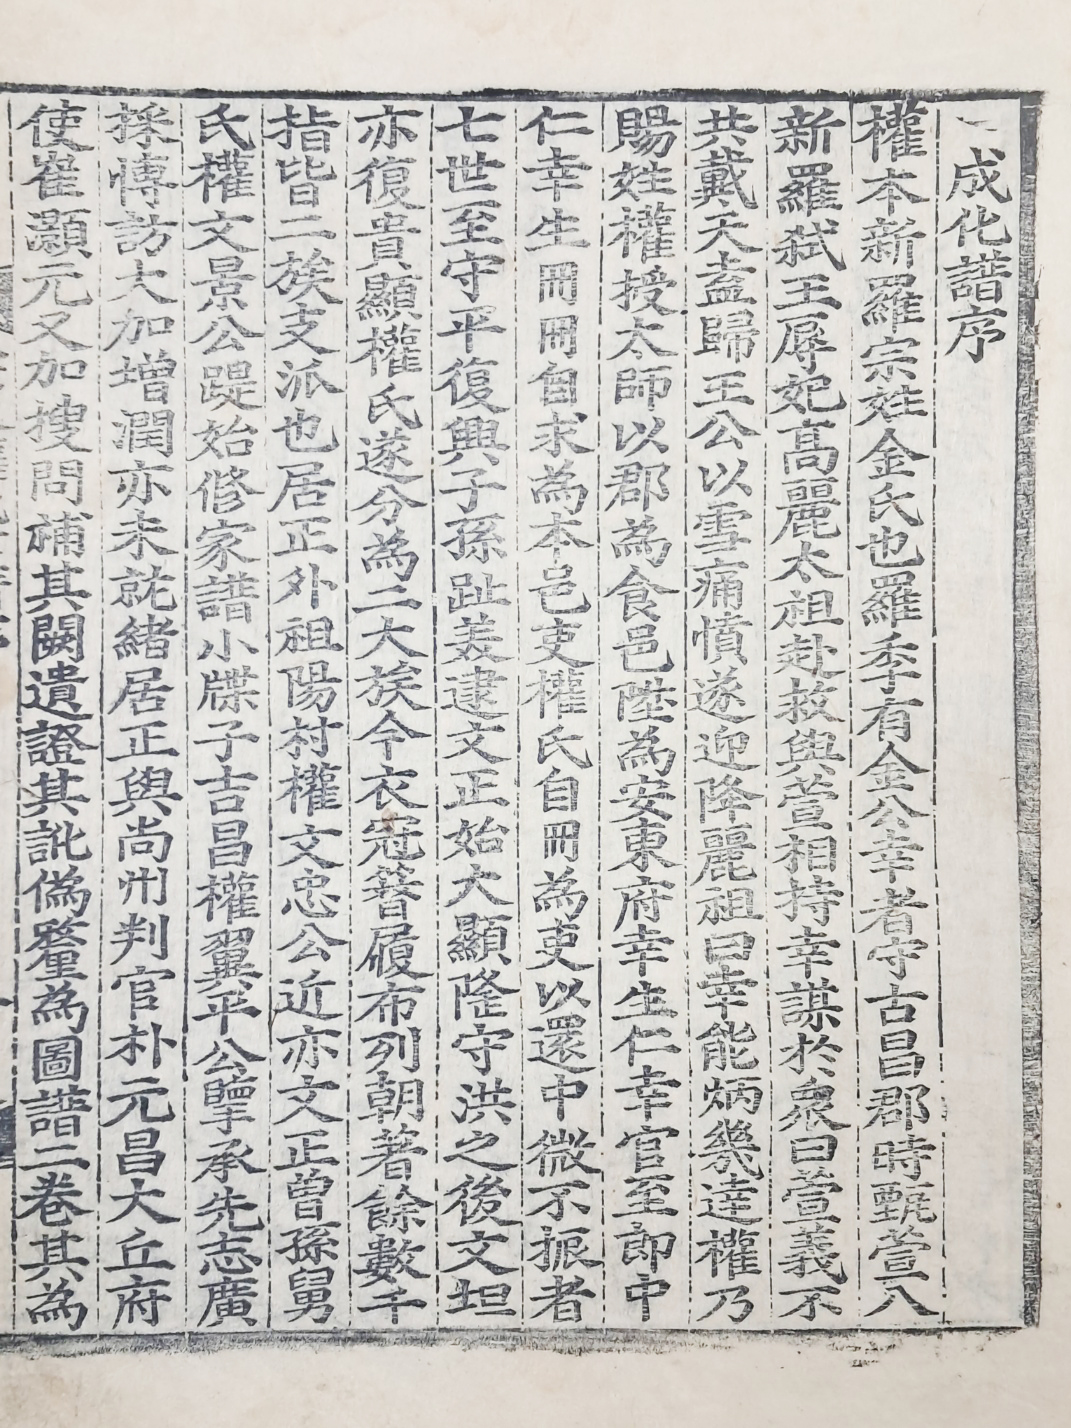 成化譜序
權本新羅宗姓金氏也羅季有金公幸者守古昌郡時甄萱入
新羅弑王辱妃高麗太祖赴救與萱相持幸謀於衆曰萱義不
共戴天盍歸王公以雪痛憤遂迎降麗祖曰幸能炳幾達權乃
賜姓權授太師以郡爲食邑陞爲安東府幸生仁幸官至郎中
仁幸生冊冊自求爲本邑吏權氏自冊爲吏以還中微不振者
七世至守平復興子孫趾美逮文正始大顯隆守洪之後文坦
亦復貴顯權氏遂分爲二大族今衣冠簪履布列朝著餘數千
指皆二族支派也居正外祖陽村權文忠公近亦文正曾孫舅
氏權文景公踶始修家譜小牒子吉昌權翼平公擥承先志廣
採慱訪大加增潤亦未就緒居正與尙州判官朴元昌大丘府
使崔灝元又加搜問補其闕遺證其訛僞釐爲圖譜二巻其爲